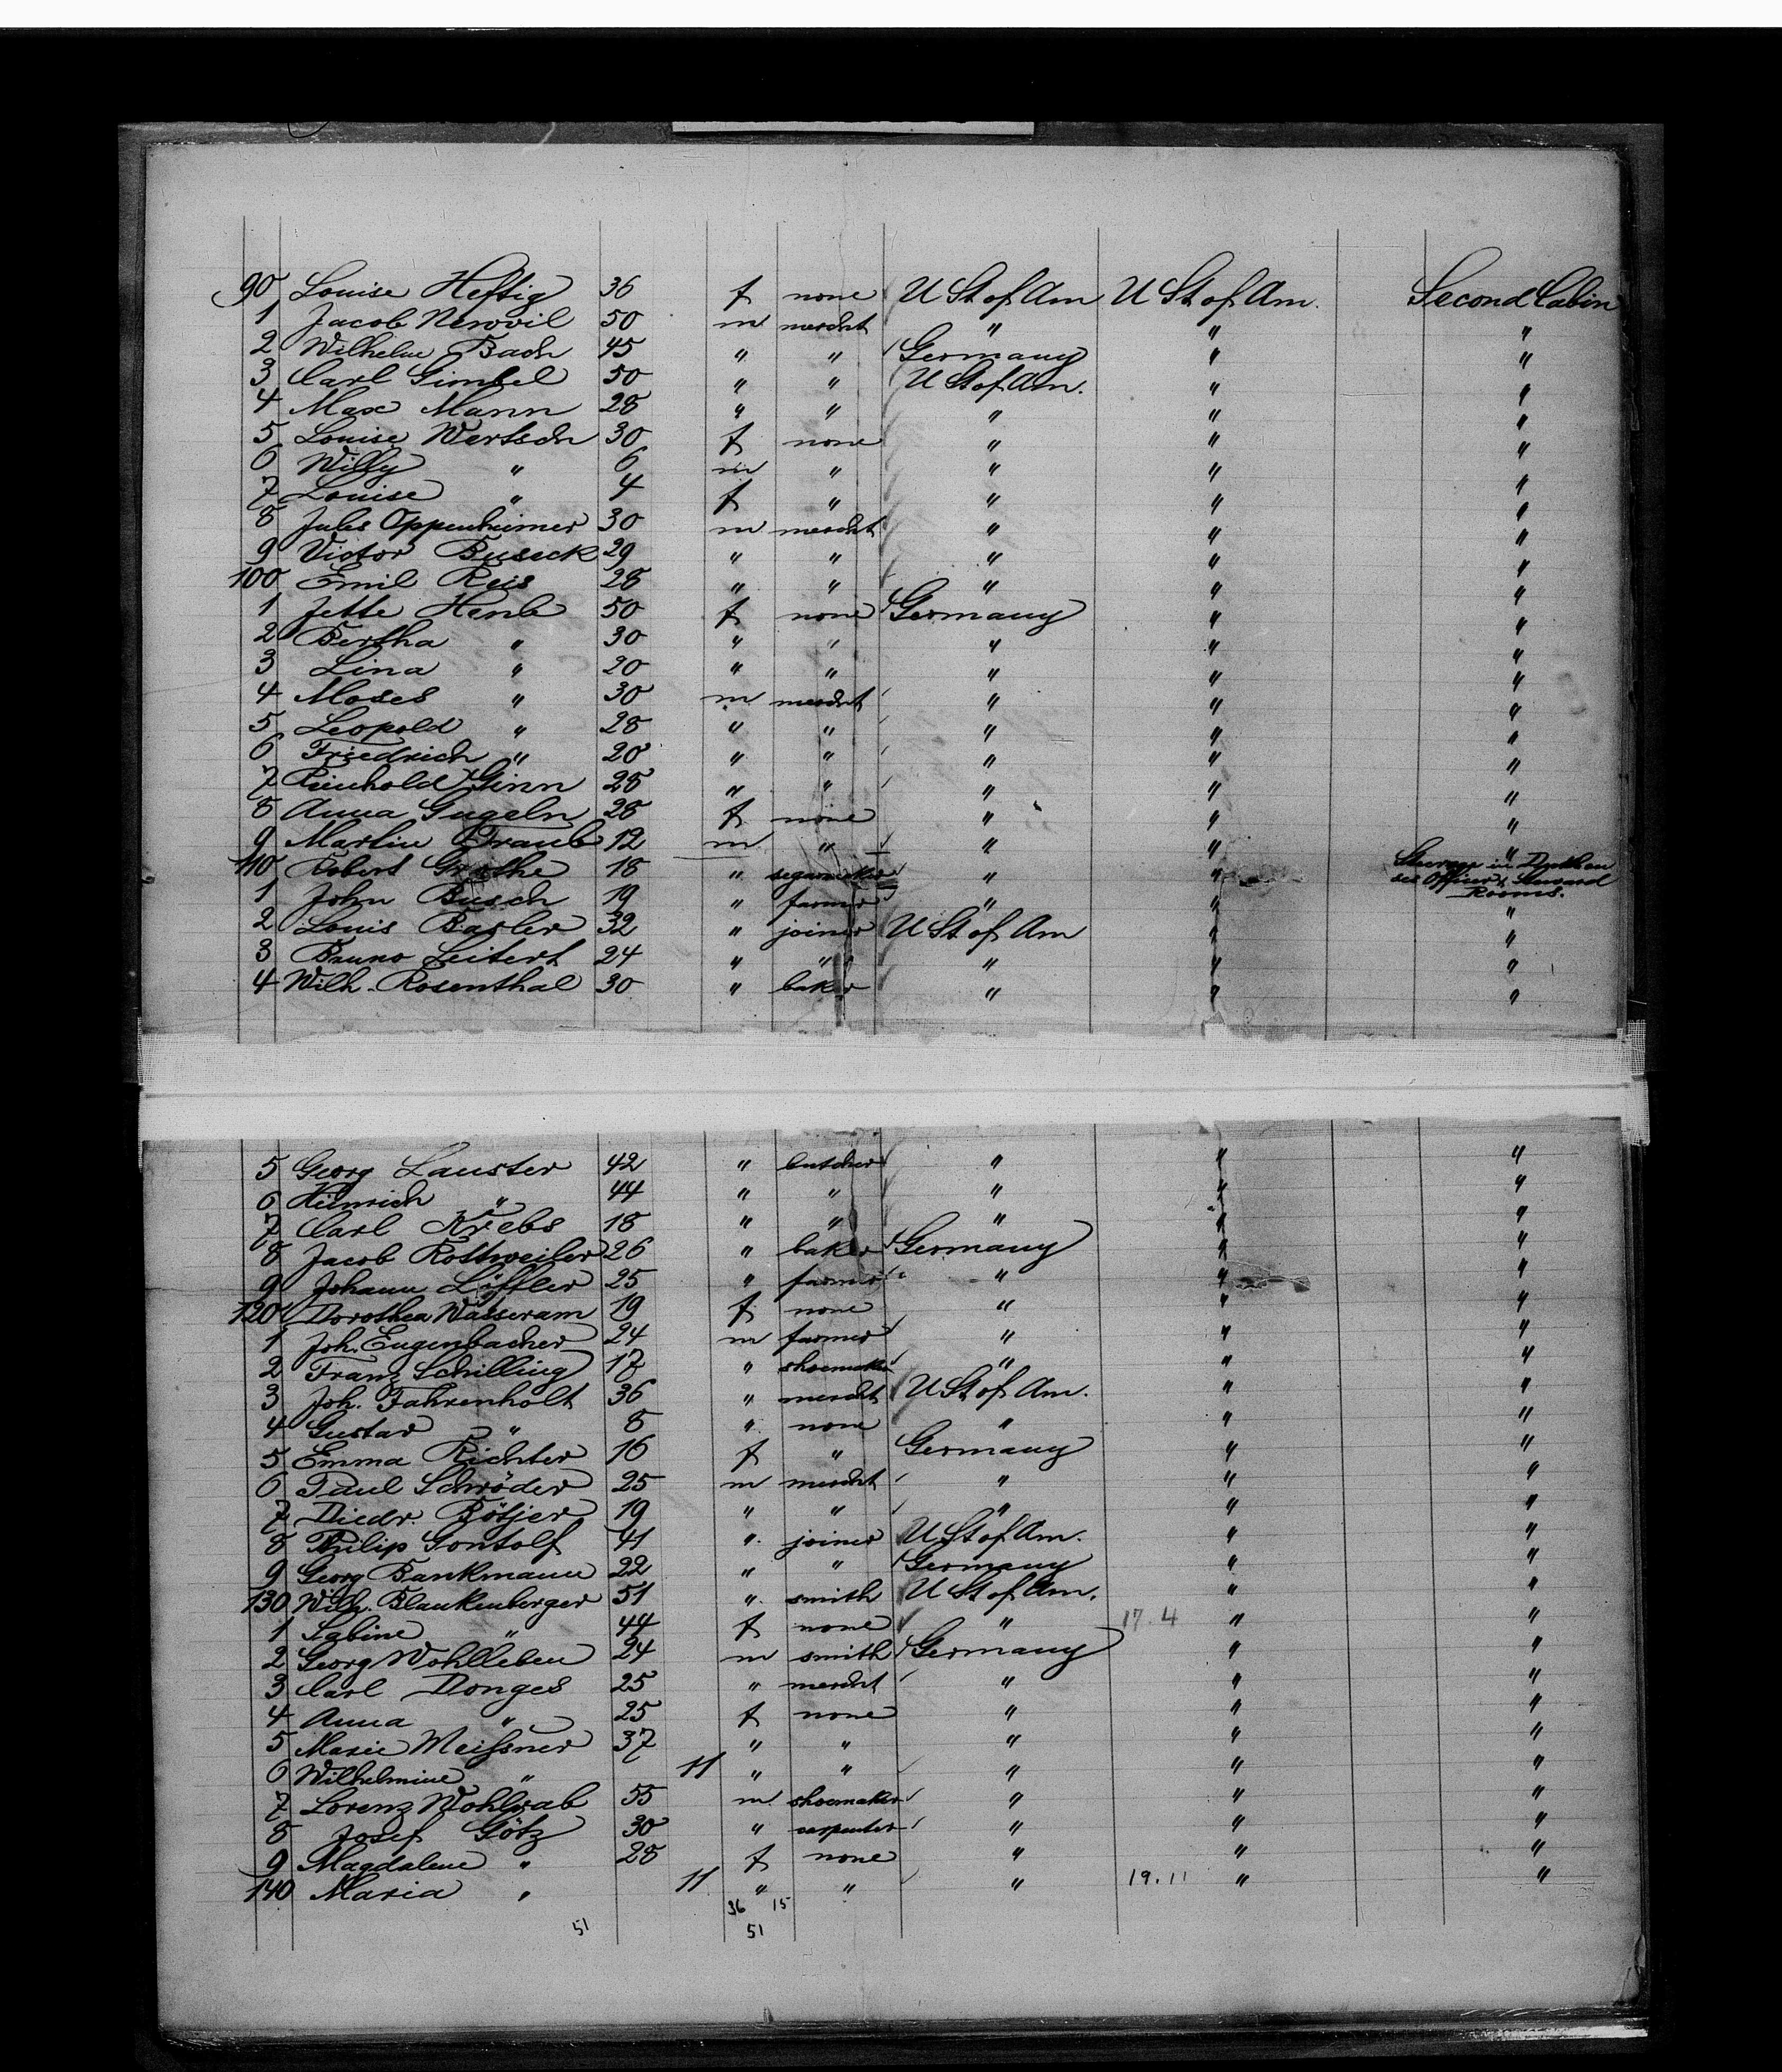 90 Louise Heftig 36 f none U St of Am U St of Am. Second Cabin
1 Jacob 50 m merdht " " "
2 Wilhelm Bach 45 " " Germany " "
3 Carl Gimbel 50 " " U St of Am. " "
4 Max Mann 28 " " " " "
5 Louise Wertsch 30 f none " " "
6 Willy " 6 m " " " "
7 Louise " 4 f " " " "
8 Jules Oppenheimer 30 m merdht " " "
9 Victor Buseck 29 " " " " "
100 Emil Reis 28 " " " " "
1 Jette Henle 50 f none Germany " "
2 Bertha " 30 " " " " "
3 Lina " 20 " " " " "
4 Moses " 30 m merdht " " "
5 Leopold " 28 " " " " "
6 Friedrich " 20 " " " " "
7 Reinhold Ginn 28 " " " " "
8 Anna Gugeln 28 f none " " "
9 Martin Traub 12 m " " " "
110 Robert Grothe 18 " segarmaker " " Steerage in
Officer & Steward
Rooms.
1 John Busch 19 " farmer " " "
2 Louis Basler 32 " joiner U St of Am " "
3 Bruno Leitert 24 " " " " "
4 Wilh. Rosenthal 30 " baker " " "
5 Georg Lauster 42 " butcher " " "
6 Heinrich " 44 " " " " "
7 Carl Krebs 18 " " " " "
8 Jacob Rottweiler 26 " baker Germany " "
9 Johann Löffler 25 " farmer " " "
120 Dorothea Wasseram 19 f. none " " "
1 Joh. Eugenbacher 24 m farmer " " "
2 Franz Schilling 17 " shoemaker " " "
3 Joh. Fahrenholt 36 " merdht U St of Am. " "
4 Gustav " 8 " none " " "
5 Emma Richter 16 f " Germany " "
6 Paul Schröder 25 m merdht " " "
7 Diedr. Bötjer 19 " " " " "
8 Philip Gontolf 41 " joiner U St of Am. " "
9 Georg Bankmann 22 " " Germany " "
130 Wilh. Blankenberger 51 " smith U St of Am. " "
1 Sabine " 44 f none " 17.4 " "
2 Georg Wohlleben 24 m smith Germany " "
3 Carl Donges 25 " merdht " " "
4 Anna " 25 f none " " "
5 Marie Meißner 37 " " " " "
6 Wilhelmine " 11 " " " " "
7 Lorenz Wohlrab 55 m shoemaker " " "
8 Josef Götz 30 " carpenter " " "
9 Magdalene " 28 f none " " "
140 Maria " 11 " " " 19.11 " "
36 15
51 51